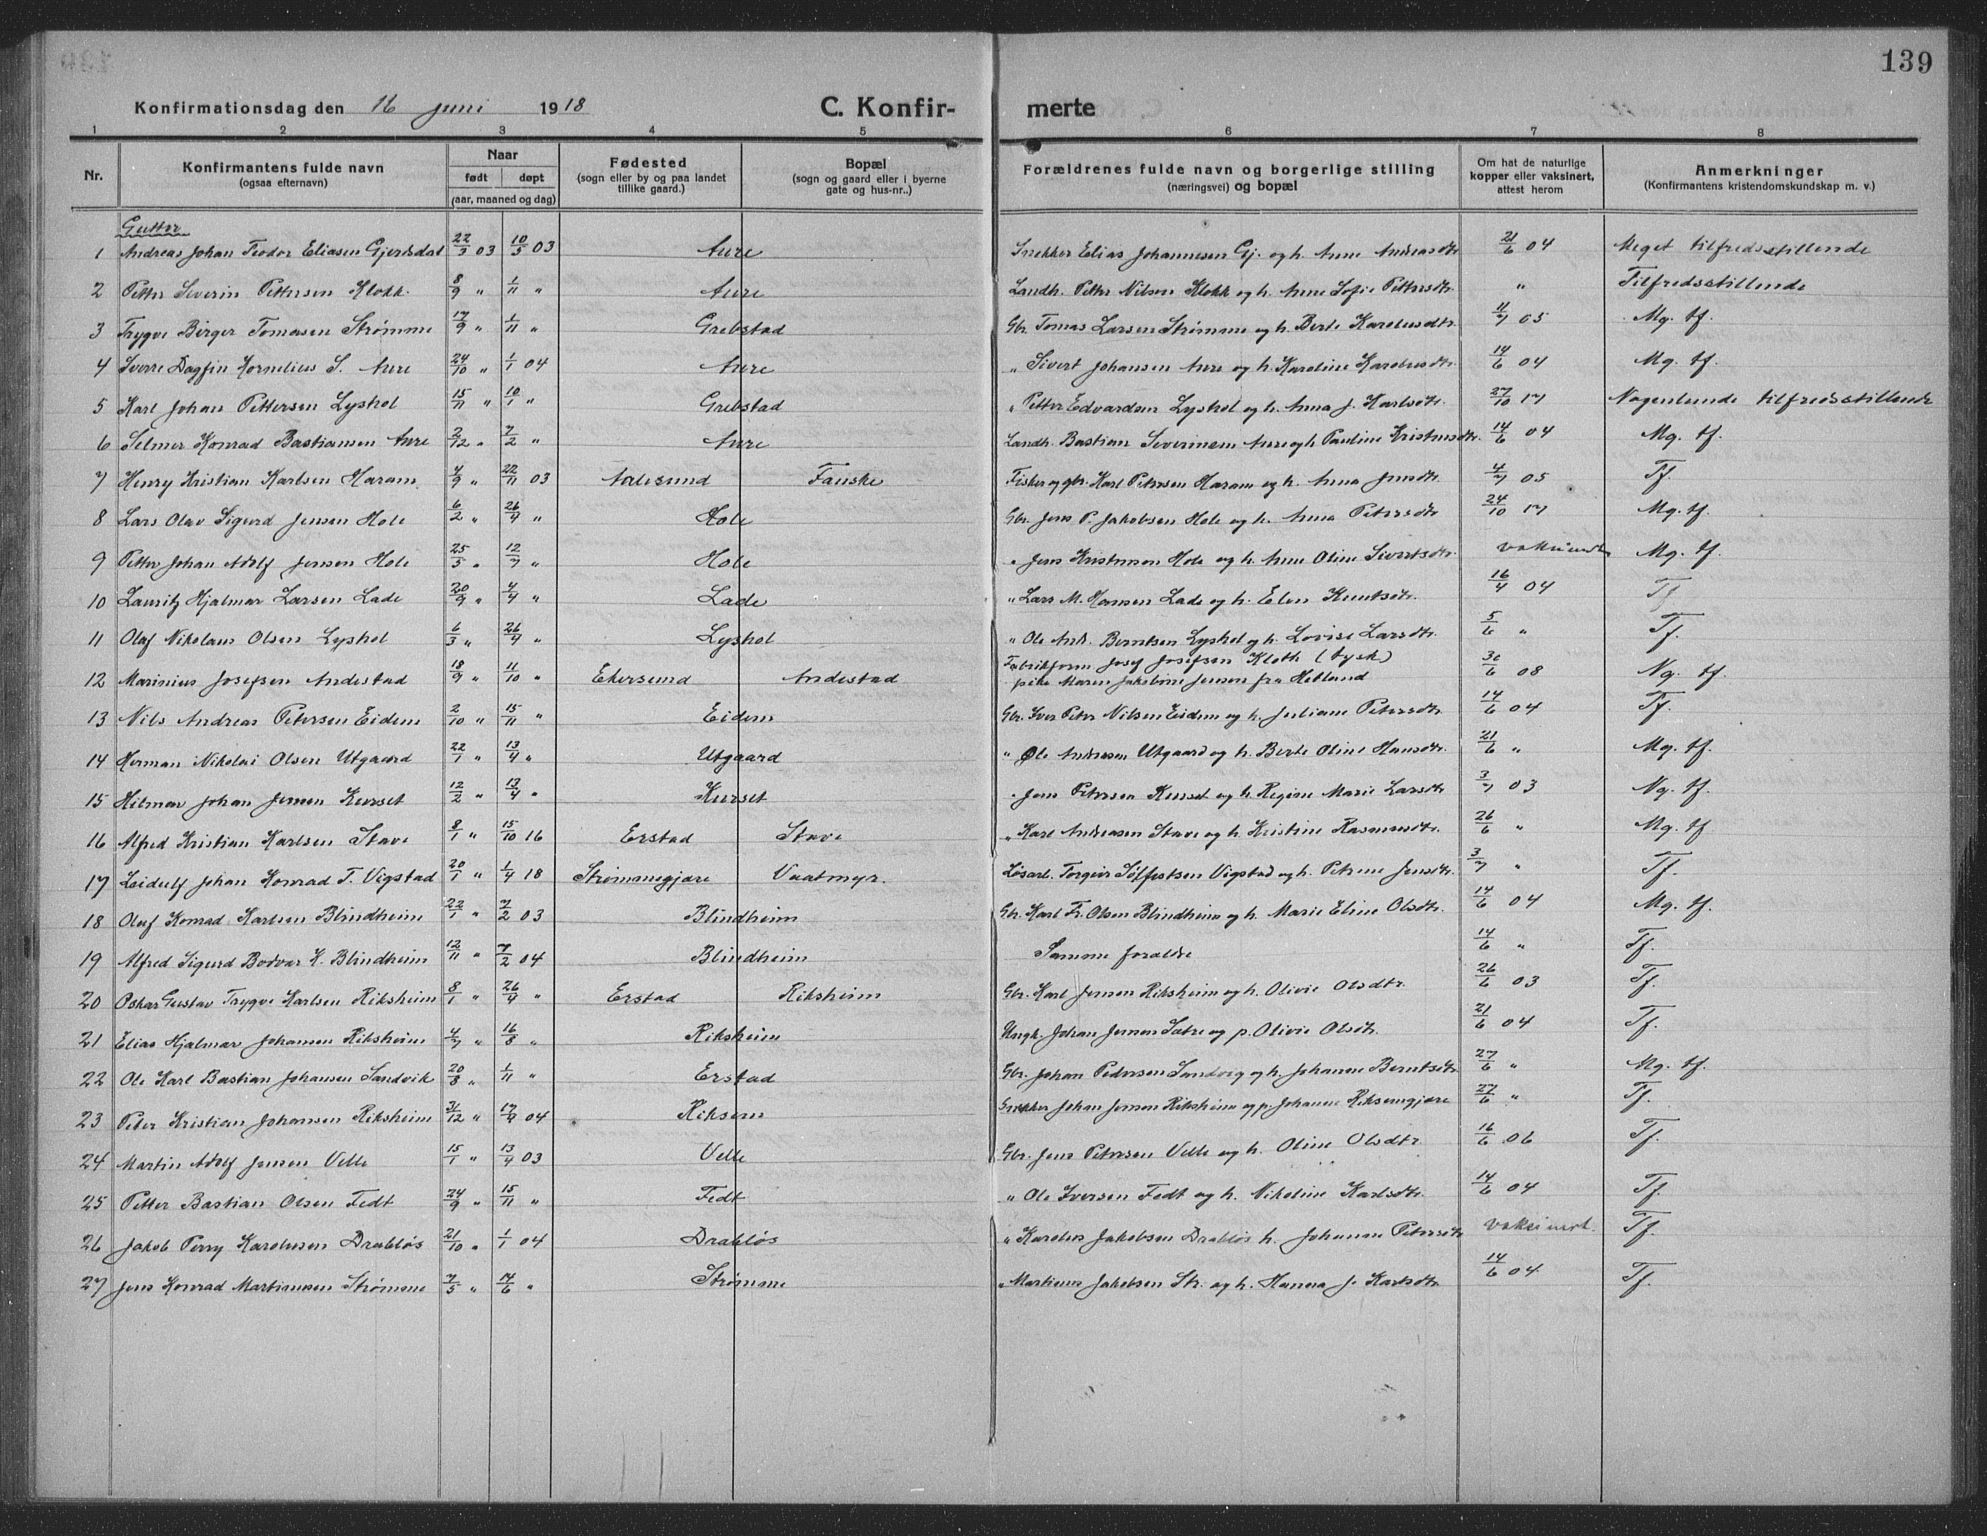 139
Konfirmationsdag den 16 juni 1918 C. Konfir- merte
1 2 3 4 5 6 7 8
Nr. Konfirmantens fulde navn (ogsaa efternavn) Naar født døpt (aar, maaned og dag) Fødested (sogn eller by og paa landet tillike gaard.) Bopæl (sogn og gaard eller i byerne gate og hus-nr..) Forældrenes fulde navn og borgerlige stilling (næringsvei) og bopæl Om hat de naturlige kopper eller vaksinert, attest herom Anmerkninger (Konfirmantens kristendomskundskap m. v.)
Gutter
1 Andreas Johan Teodor Eliasen Gjertsdal 22/3 03 10/5 03 Aure Snekker Elias Johannesen Gj. og h. Anne Andreasdtr 21/6 04 Meget tilfredsstillende
2 Petter Severin Pettersen Klokk 8/9 " 1/11 " Aure Landh. Petter Nilsen Klokk og h. Anne Sofie Pettersdtr. " Tilfredsstillende
3 Trygve Birger Tomasen Strømme 17/9 " 1/11 " Grebstad Gbr. Tomas Larsen Strømme og h. Berte Karolusdtr. 11/7 05 Mg. tf.
4 Sverre Dagfin Kornelius S. Aure 24/10 " 1/1 04 Aure " Sivert Johansen Aure og h. Karoline Karolusdtr. 14/6 04 Mg. tf.
5 Karl Johan Pettersen Lyshol 15/11 " 10/1 " Grebstad " Petter Edvardsen Lyshol og h. Anna J. Karlsdtr. 27/10 17 Nogenlunde tilfredsstillende
6 Selmer Konrad Bastiansen Aure 2/12 " 7/2 " Aure Landh. Bastian Severinsen Aure og h Pauline Kristensdtr. 14/6 04 Mg. tf.
7 Henry Kristian Karlsen Haram 4/9 " 22/11 03 Aalesund Fauske Fisker og gbr. Karl Petersen Haram og h. Anna Jensdtr. 4/7 05 Tf.
8 Lars Olav Sigurd Jensen Hole 6/2 " 26/4 " Hole Gbr. Jens P. Jakobsen Hole og h. Anna Petersdtr 24/10 17 Mg. tf.
9 Petter Johan Adolf Jensen Hole 25/5 " 12/7 " Hole " Jens Kristensen Hole og h. Anne Oline Sivertsdtr. vaksinert Mg. tf.
10 Lauritz Hjalmar Larsen Lade 20/9 " 4/4 " Lade " Lars M. Hansen Lade og h. Elen Knutsdtr. 16/4 04 Tf
11 Olaf Nikolaus Olsen Lyshol 6/3 " 26/4 " Lyshol " Ole And. Berntsen Lyshol og h. Lovise Larsdtr. 5/6 " Tf.
Fabrikform Josef Josefsen Kloth (tysk)
12 Marinius Josefsen Andestad 18/9 " 11/10 " Ekersund Andestad pike Maren Jakobine Jensen fra Hetland 30/6 08 Ng. tf.
13 Nils Andreas Petersen Eidem 2/10 " 15/11 " Eidem Gbr. Iver Peter Nilsen Eidem og h. Juliane Petersdtr 14/6 04 Tf.
14 Herman Nikolai Olsen Utgaard 22/1 " 13/4 " Utgaard " Ole Andreasen Utgaard og h. Berte Oline Hansdtr. 21/6 " Mg. tf.
15 Hilmar Johan Jensen Kurset 12/2 " 13/4 " Kurset " Jens Petersen Kurset og h. Regine Marie Larsdtr 3/7 03 Ng. tf.
16 Alfred Kristian Karlsen Stave 8/1 " 15/10 16 Erstad Stave " Karl Andreasen Stave og h. Kristine Rasmusdtr. 26/6 " Mg. tf.
17 Leidulf Johan Konrad T. Vigstad 20/1 " 1/4 18 Strømmegjære Vaatmyr. Løsarb. Torgeir Sølfestsen Vigstad og h. Petrine Jensdtr. 3/7 " Tf.
18 Olaf Konrad Karlsen Blindheim 22/1 " 7/2 03 Blindheim Gbr. Karl Fr. Olsen Blindheim og h. Marie Eline Olsdtr. 14/6 04 Mg. tf.
19 Alfred Sigurd Bodvar K. Blindheim 12/11 " 7/2 04 Blindheim Samme foraldre 14/6 " Tf.
20 Oskar Gustav Trygve Karlsen Riksheim 8/1 " 26/4 " Erstad Riksheim Gbr. Karl Jensen Riksheim og h. Olivie Olsdtr. 26/6 03 Tf.
21 Elias Hjalmar Johansen Riksheim 4/7 " 16/8 " Riksheim Ungk. Johan Jensen Sætre og p. Olivie Olsdtr. 21/6 04 Tf.
22 Ole Karl Bastian Johansen Sandvik 20/8 " 1/11 " Erstad Gbr. Johan Pedersen Sandvig og h. Johanne Berntsdtr 27/6 " Mg. tf.
23 Peter Kristian Johansen Riksheim 31/12 " 17/4 04 Riksem Snekker Johan Jensen Riksheim og p. Johanne Riksemgjære 27/6 " Tf.
24 Martin Adolf Jensen Velle 15/1 " 13/4 03 Velle Gbr. Jens Petersen Velle og h. Oline Olsdtr. 16/6 06 Tf.
25 Petter Bastian Olsen Fedt 24/9 " 15/11 " Fedt " Ole Iversen Fedt og h. Nikoline Karlsdtr. 14/6 04 Tf.
26 Jakob Perry Karolusen Drabløs 21/10 " 1/1 04 Drabløs " Karolus Jakobsen Drabløs h. Johanne Petersdtr vaksinert. Tf.
27 Jens Konrad Martinusen Strømme 7/5 " 14/6 " Strømme " Martinus Jakobsen Str. og h. Hanna J. Karlsdtr. 14/6 04 Tf.